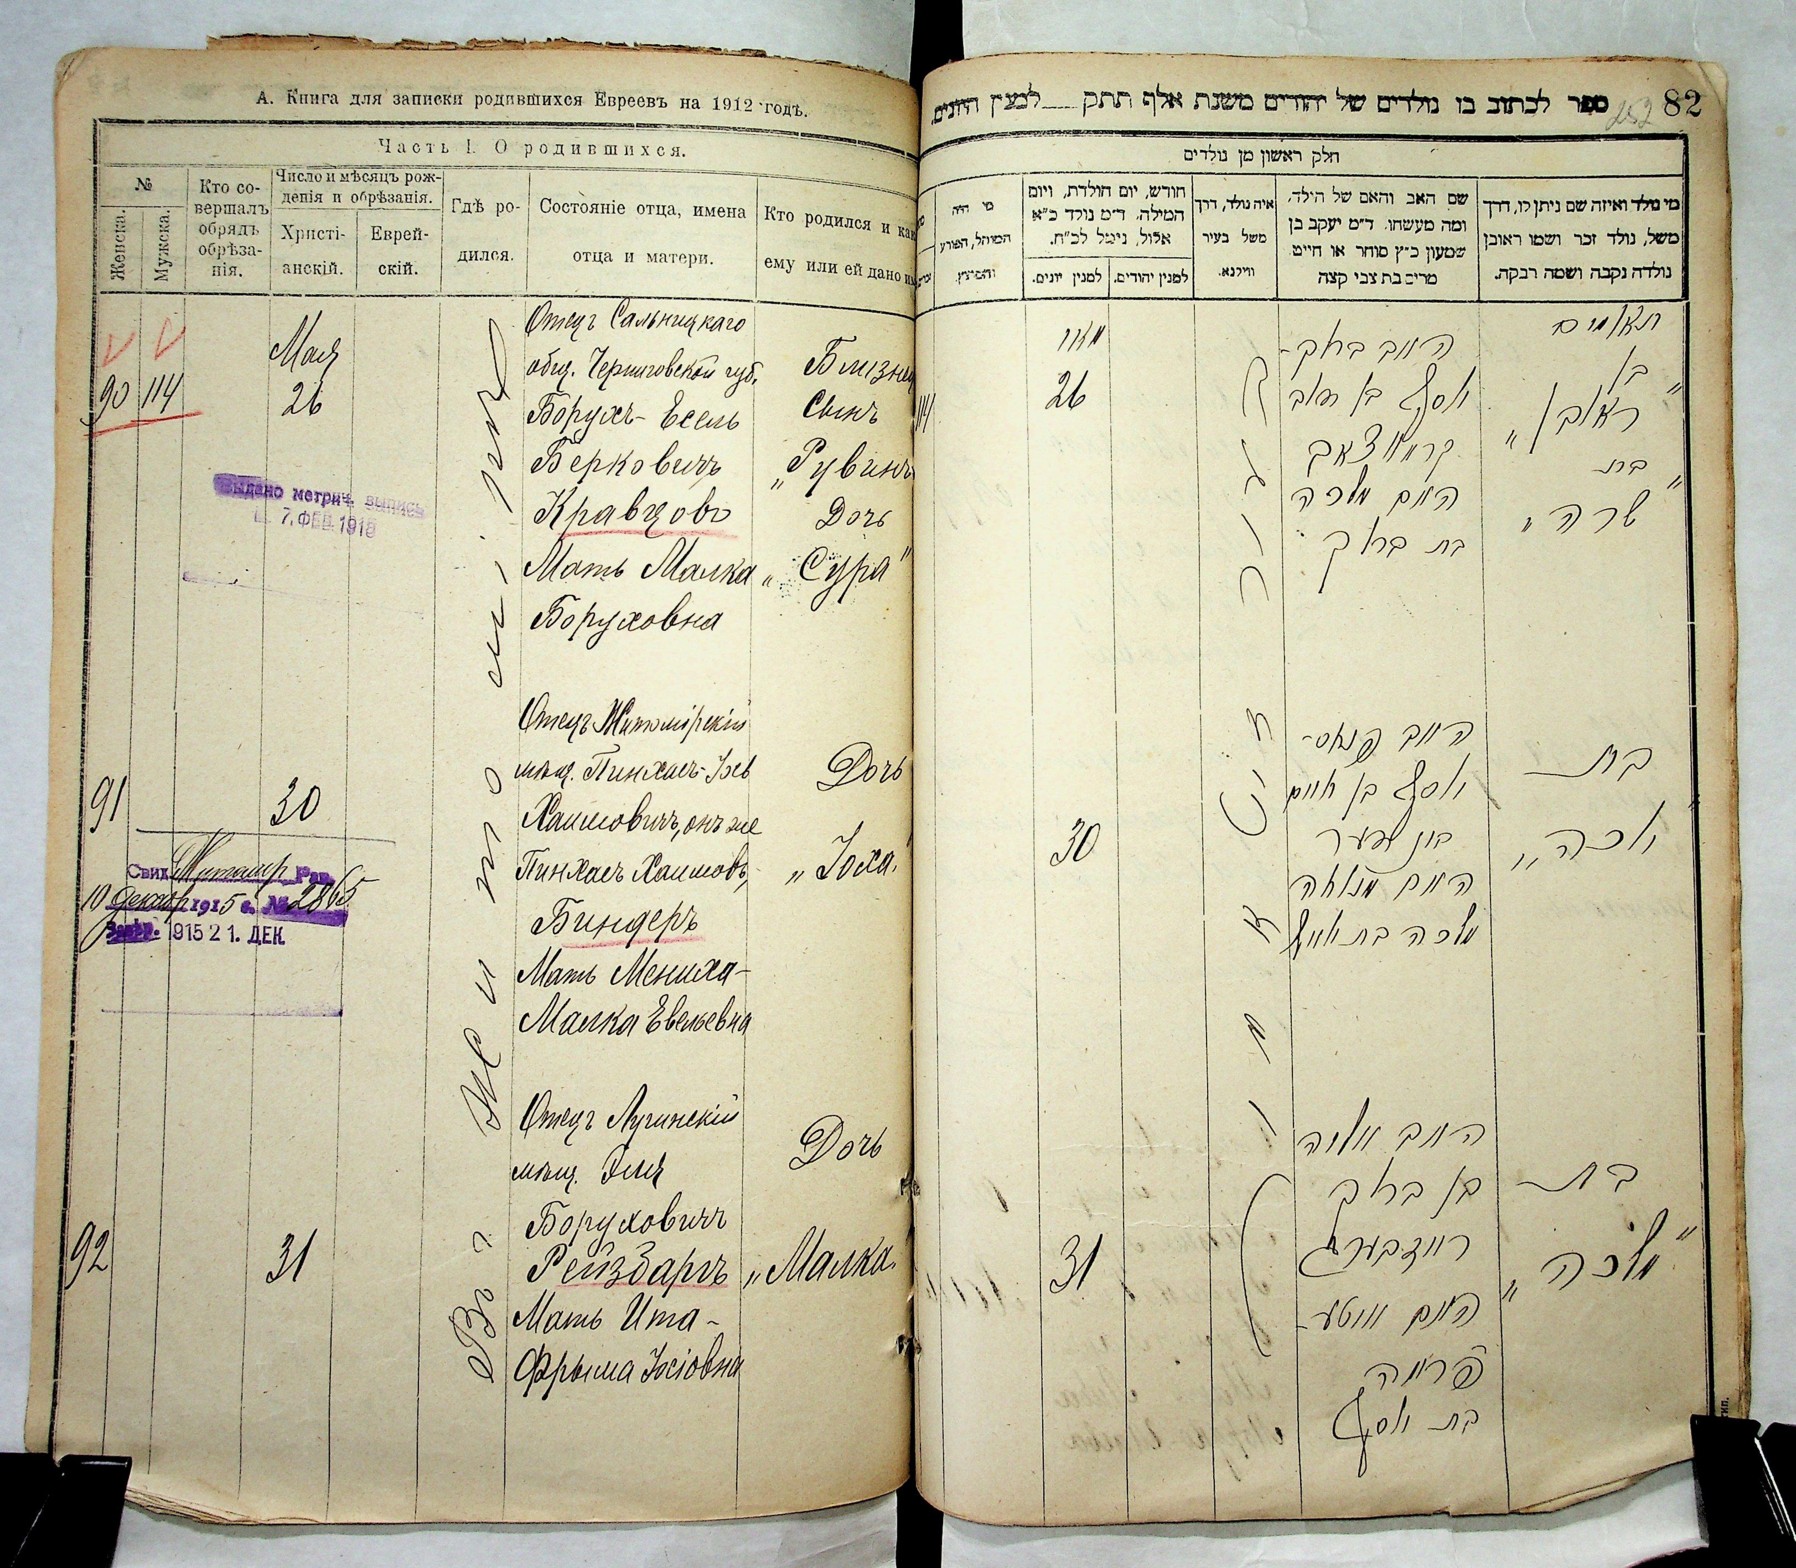 А. Книга для записки родившихся Евреевъ на 1912 годъ.
Часть I. О родившихся.
№
Женска.
Мужска.
Кто со-
вершалъ
обрядъ
обрѣза-
нія.
Число и мѣсяцъ рож-
денія и обрѣзанія.
Христі-
анскій.
Еврей-
скій.
Гдѣ ро-
дился.
Состояніе отца, имена
отца и матери.
Кто родился и как
ему или ей дано им
90 114
Мая
26
Въ г. Житомірѣ
Отецъ Сальницкаго
общ. Черниговской губ.
Борухъ-Есель
Берковичъ
Кравцовъ
Мать Малка
Боруховна
Близнец
Сынъ
„Рувинъ
Дочь
„Сура“
Выдано метрич. выпись
7. ФЕВ 1918
91
30
Отецъ Житомірскій
мѣщ. Пинхасъ-Іосъ
Хаимовичъ, онъ же
Пинхасъ Хаимовъ,
Биндеръ
Мать Мениха-
Малка Евельевна
Дочь
„Іоха“
Свид. Житомір Рав.
10 декабр 1915 г. № 2865
1915 21. ДЕК.
92
31
Отецъ Лугинскій
мѣщ. Эля
Боруховичъ
Рейзбаргъ
Мать Ита-
Фрыма Іосіовна
Дочь
„Малка“
82
ספר לכתוב בו נולדים של יהודים משנת אלף תתק למנין היונים.
חלק ראשון מן נולדים
מי נולד ואיזה שם ניתן לו, דרך
משל, נולד זכר ושמו ראובן
נולדה נקבה ושמה רבקה.
שם האב והאם של הילד,
ומה מעשהו. ד״מ יעקב בן
שמעון כ״ץ סוחר או חייט
מרים בת צבי קצה
איה נולד, דרך
משל בעיר
ווילנא.
חודש, יום הולדת, ויום
המילה. ד״מ נולד כ״א
אלול, נימל לכ״ח.
למנין יהודים.
למנין יונים.
מי היה
המוהל, הפורע
והמוצץ.
תאומים
בן
„ראובן“
בת
„שרה“
האב ברוך-
יוסף בן בערב
קראווצאוו
האם מלכה
בת ברוך
מאי
26
114
בת
„יוכה“
האב פנחס-
יוסף בן חיים
בינדער
האם מנוחה
מלכה בת
30
בת
„מלכה“
האב אליה
בן ברוך
רייזבערג
האם איטע-
פרומה
בת יוסף
31